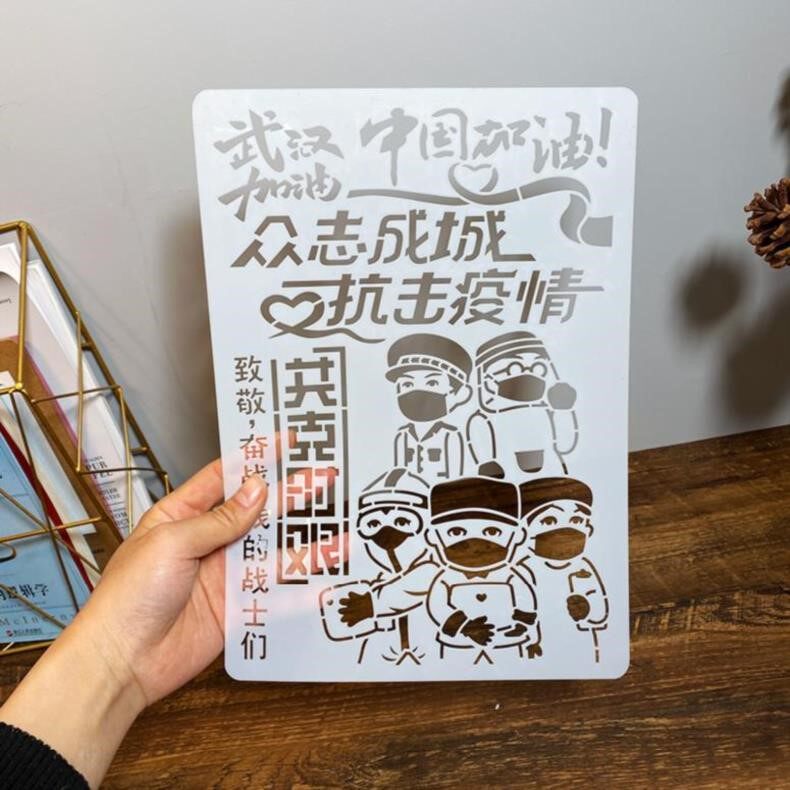 武汉
加油
中国加油!
众志成城
抗击疫情
共克时艰
致敬,奋战
线的战士们